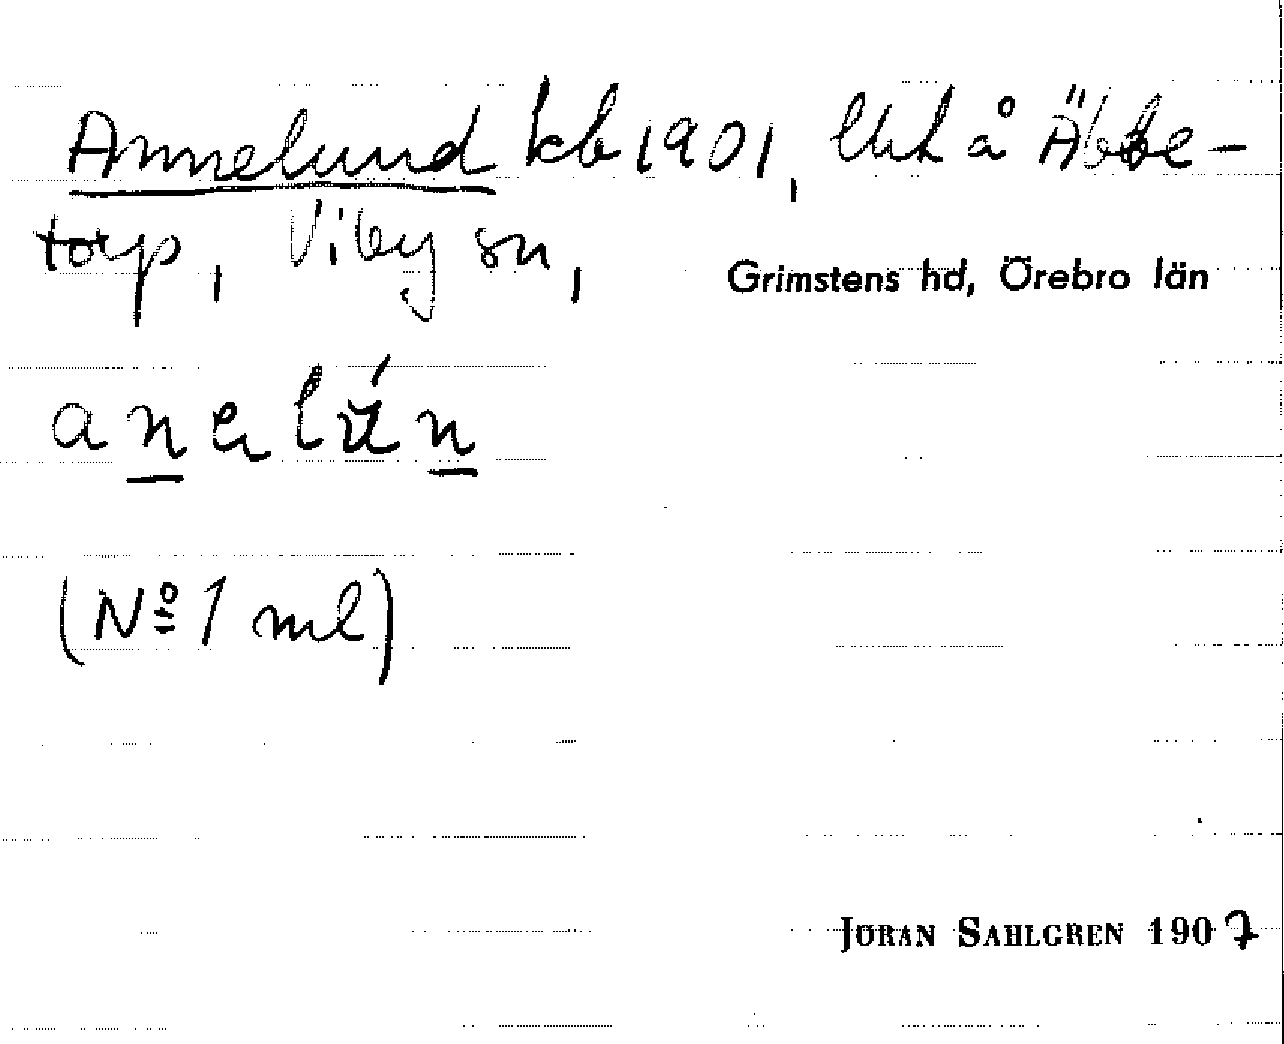 Annelund kb 1901, lht å Äbbe-
torp, Viby sn,
Grimstens hd, Örebro län
anelún
(Nº 1 ml)
JÖRAN SAHLGREN 1907